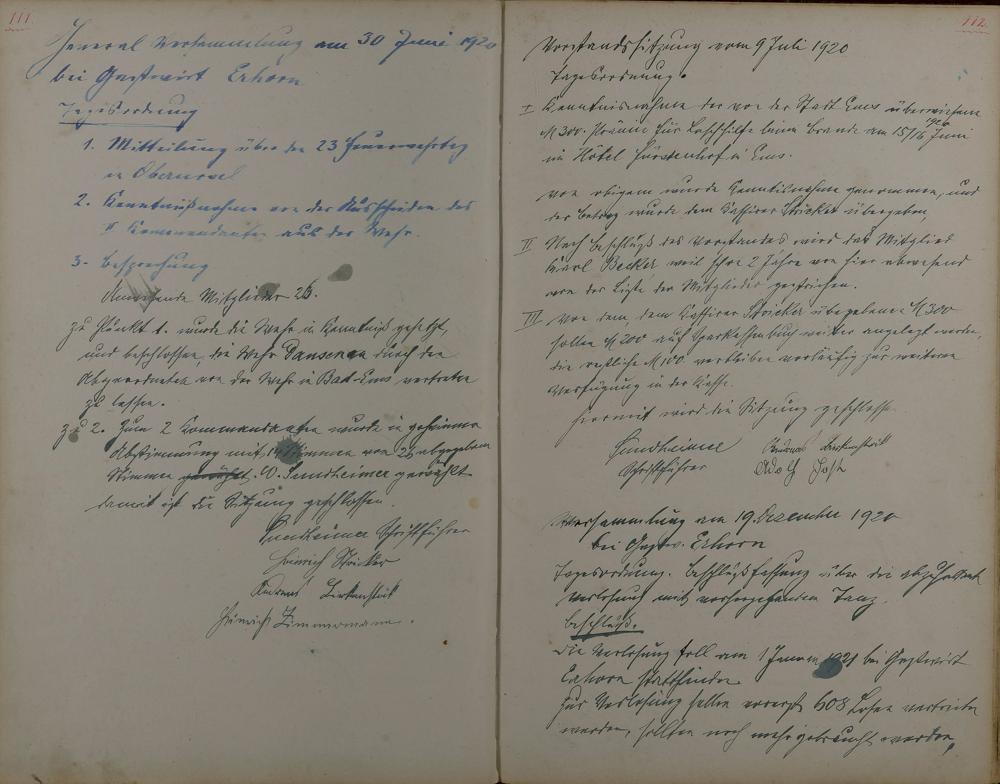 111.
General Versammlung am 30 Juni 1920
bei Gastwirt Echorn
Tagesordnung
1. Mitteilung über den 23 Feuerwehrtag
in Oberursel
2. Kenntnißnahme von der Ausscheiden des
II Kommandanten aus der Wehr.
3. Besprechung
Anwesende Mitglieder 26.
zu Punkt 1. wurde die Wehr in Kenntniß gesetzt,
und beschlossen, die Wehr Dausenau durch den
Abgeordneten von der Wehr in Bad-Ems vertreten
zu lassen.
zu 2. Zum 2 Kommandanten wurde in geheimer
Abstimmung mit Stimmen von abgegebenen
Stimmen gewählt. W. Sundheimer gewählt
damit ist die Sitzung geschlossen.
Sundheimer Schriftführer
Heinrich Stricker
Andreas Birkenstock
Heinrich Zimmermann.
112.
Vorstandssitzung vom 9 Juli 1920
Tagesordnung.
I Kenntnisnahme der von der Stadt Ems überwiesenen
M 300. Prämie für Löschhilfe beim Brande am 15/16 Juni 1920
im Hôtel Fürstenhof in Ems.
von obigem wurde Kenntnisnahme genommen, und
der Betrag wurde dem Kassirer Stricker übergeben
II Nach Beschluß des Vorstandes wird das Mitglied
Karl Becker weil schon 2 Jahre von hier abwesend
von der Liste der Mitglieder gestrichen.
III Von den, dem Kassirer Stricker übergebene M 300
sollen M 200 auf Sparkassenbuch weiter angelegt werden,
die restliche M 100 verbleiben vorläufig zur weiteren
Verfügung in der Kasse.
Hiermit wird die Sitzung geschlossen.
Sundheimer Andreas Birkenstock
Schriftführer Adolf Jost
Versammlung am 19. Dezember 1920
bei Gastw. Echorn
Tagesordnung. Beschlußfassung über die
Verlosung mit vorhergehendem Tanz.
Beschluß.
Die Verlosung soll am 1 Januar 1921 bei Gastwirt
Echorn stattfinden.
Zur Verlosung sollen vorerst 608 Losen vertrieben
werden, sollten noch mehr gebraucht werden,